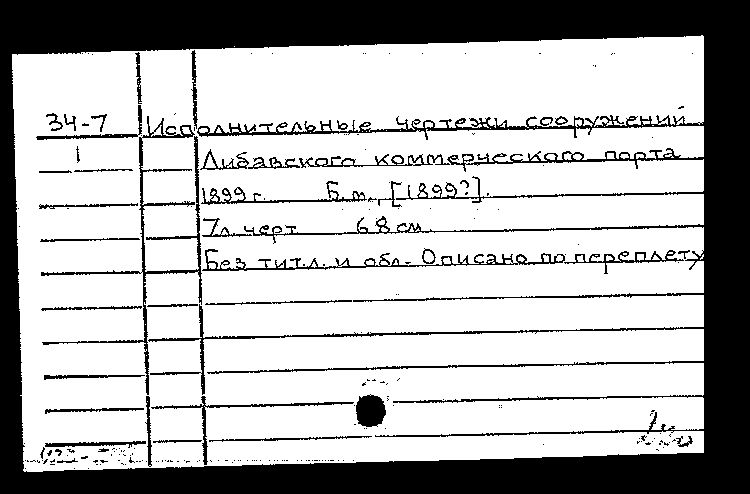 34-7 Исполнительные чертежи сооружений
1 Либавского коммерческого порта
1899 г. Б.м., [1899?].
7л. черт 68 см.
Без титл. и обл. Описано по переплету